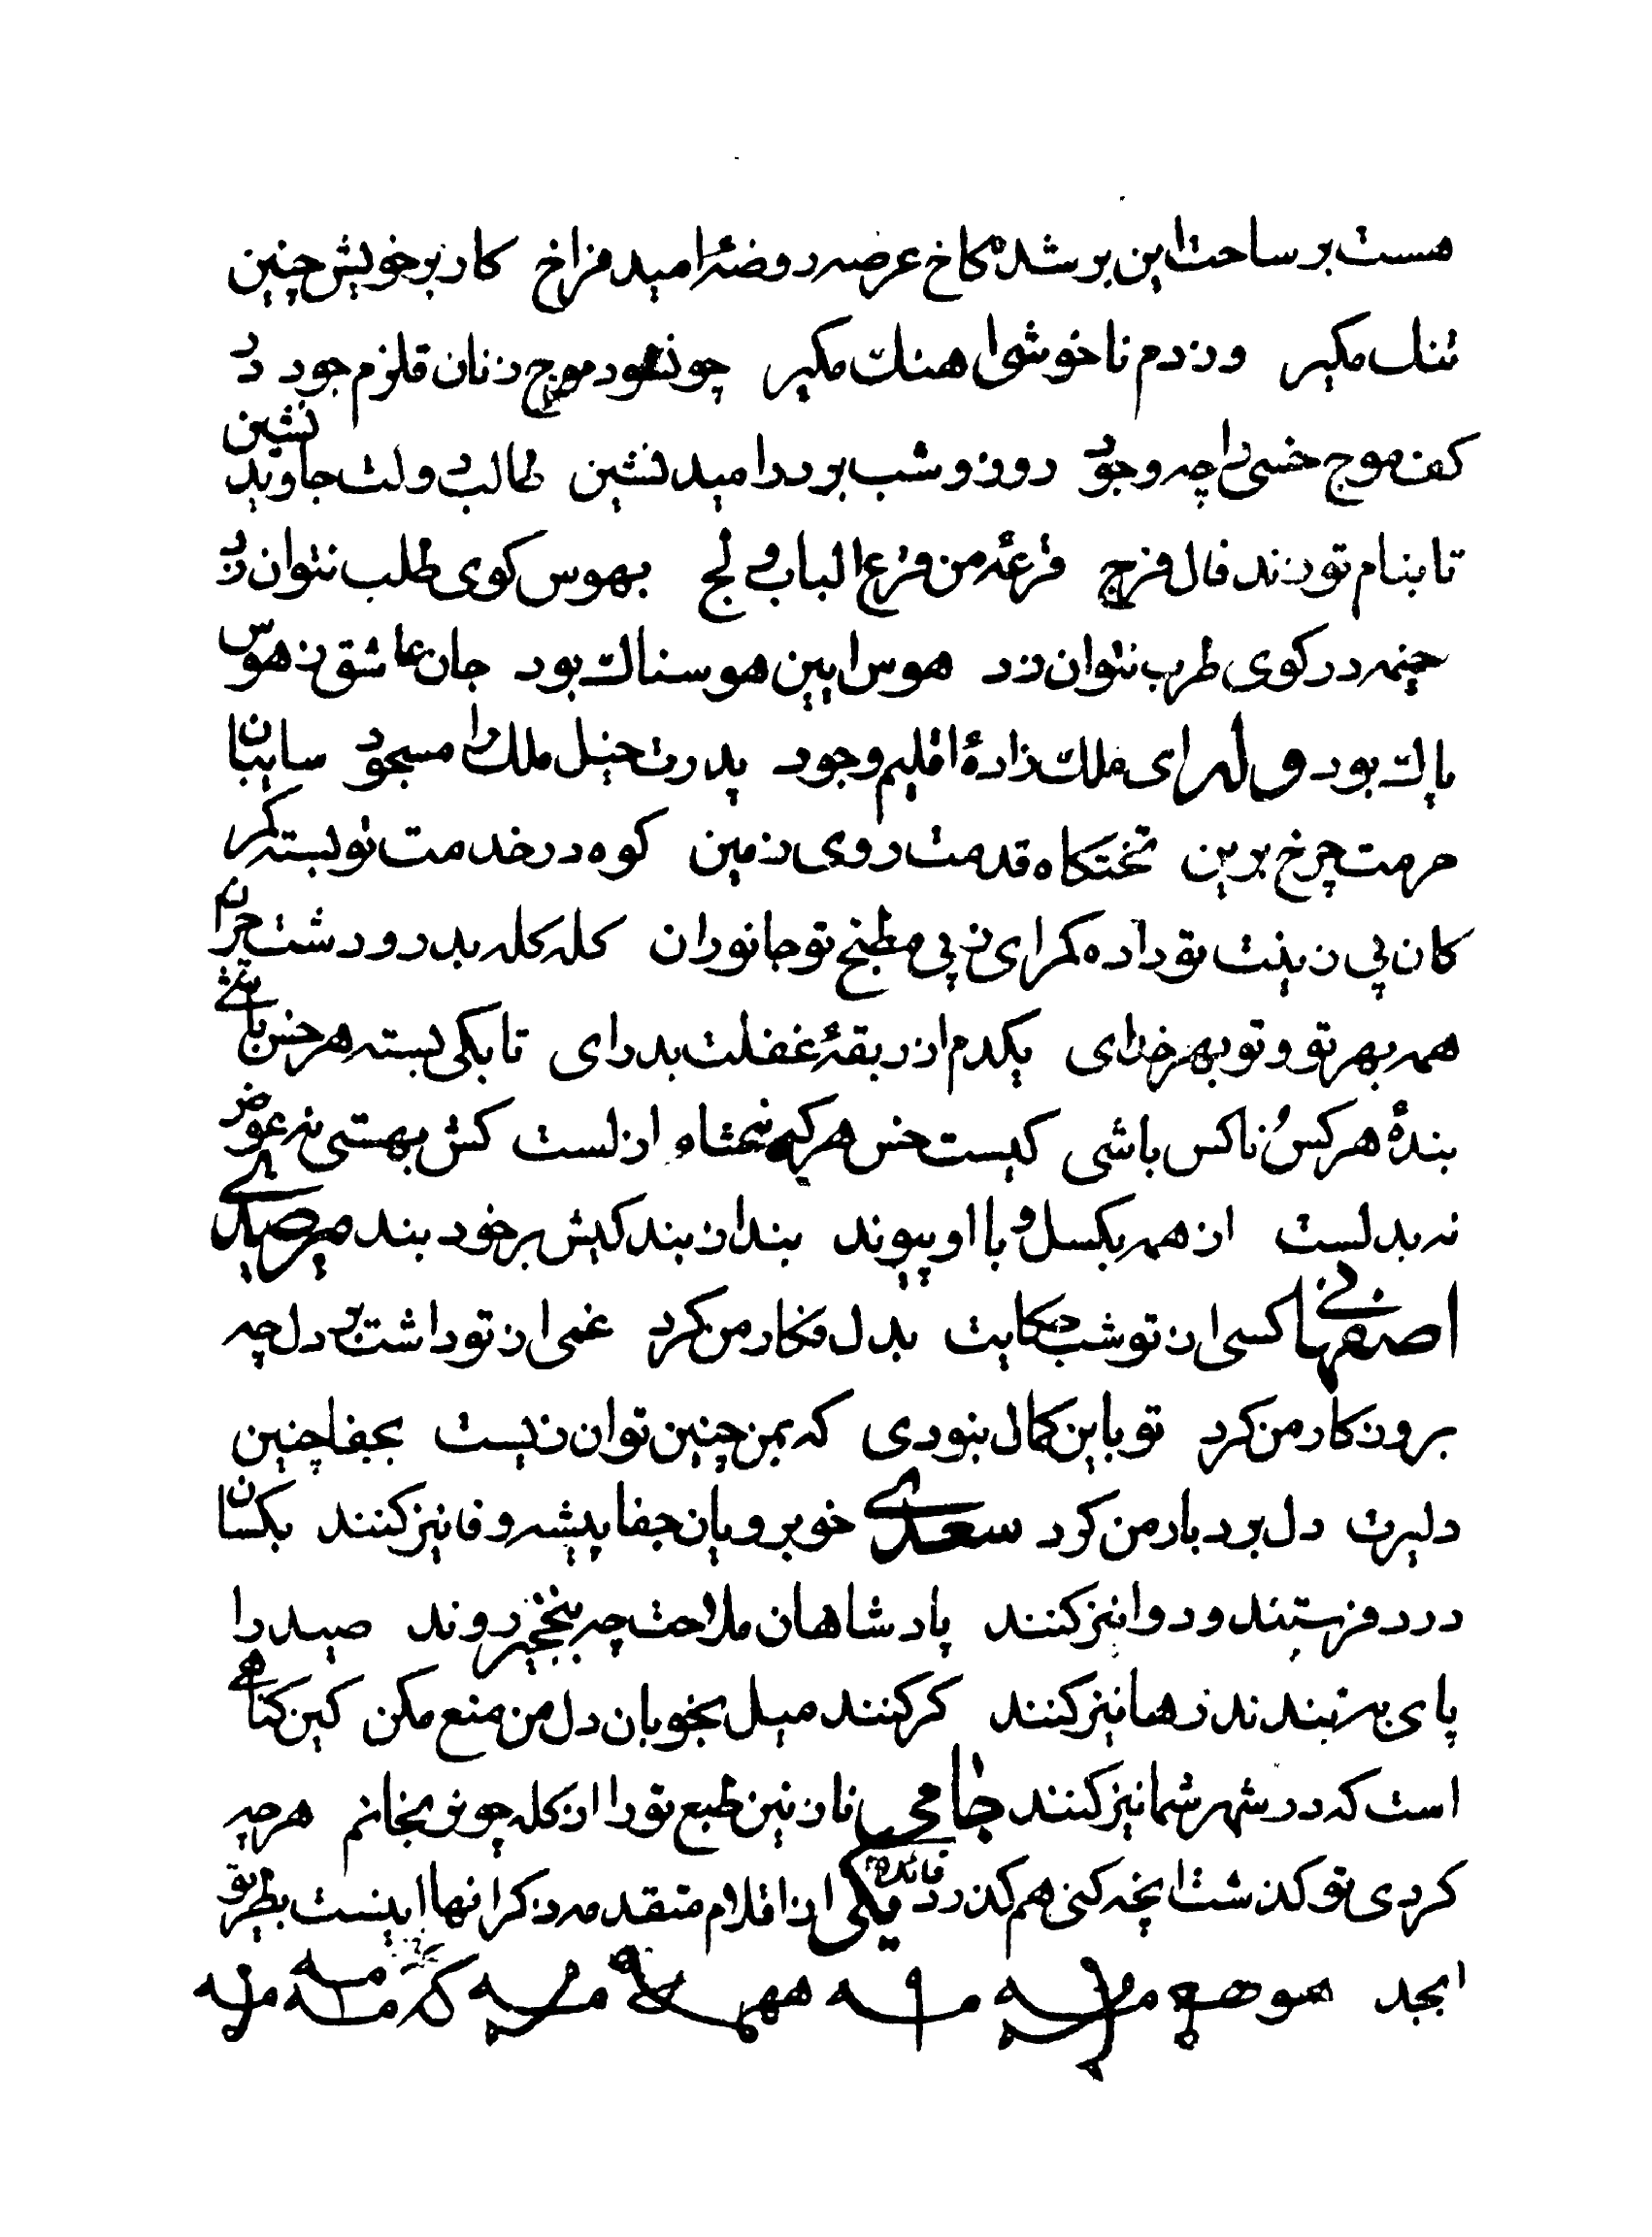 هست بر ساحت این بر شده کاخ عرصه روضهٔ امید فراخ کار بر خویش چنین
تنک مکیر وز دم ناخوشی اهنک مکیر چون شود موج زنان قلزم جود در
کف موج خسی را چه وجود روز و شب بر در امید نشین طالب دولت جاوید نشین
تا بنام تو زند فال فرج قرعهٔ من قرع الباب ولج بهوس کوی طلب نتوان زد
خیمه در کوی طرب نتوان زد هوس ایین هوسناک بود جان عاشق ز هوس
پاک بود وله ای ملک زادهٔ اقلیم وجود پدرت خیل ملک را مسجود سایبان
حرمت چرخ برین تختکاه قدمت روی زمین کوه در خدمت تو بسته کمر
کان پی زینت تو داده کهر ای ز پی مطبخ تو جانوران کله کله بدر و دشت چران
همه بهر تو و تو بهر خدای یکدم از ربقهٔ غفلت بدر ای تا بکی بسته هر خس باشی
بندهٔ هر کس و ناکس باشی کیست خس هر که نه شاه ازلست کش بهستی نه عوض
نه بدلست از همه بکسل و با او پیوند بند از بند کیش بر خود بند میر صیدی
اصفهانی کسی از تو شب حکایت بدل فکار من کرد غمی از تو داشت در دل چه
بروزکار من کرد تو باین کمال نبودی که بمن چنین توان زیست بجفا چنین
دلیرت دل بردبار من کرد سعدی خوبرویان جفا پیشه وفا نیز کنند بکسان
درد فرستند و دوا نیز کنند پادشاهان ملاحت چه بنخجیر روند صید را
پای به بندند رها نیز کنند کر کنند میل بخوبان دل من منع مکن کین کناهی
است که در شهر شما نیز کنند جامی نازنین طبع تو را از کله چون نجانم هر چه
کردی تو کذشت انچه کنی هم کذرد فائده یکی از اقلام متقدمه ذکر انها اینست بطریق
ابجد هو